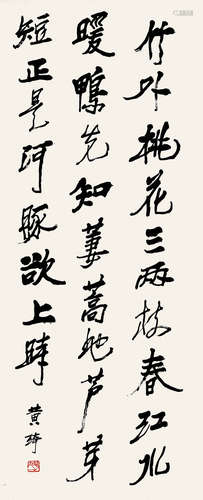 竹外桃花三两枝春江水
暖鸭先知蒌蒿地芦芽
短正是河豚欲上时
黄琦